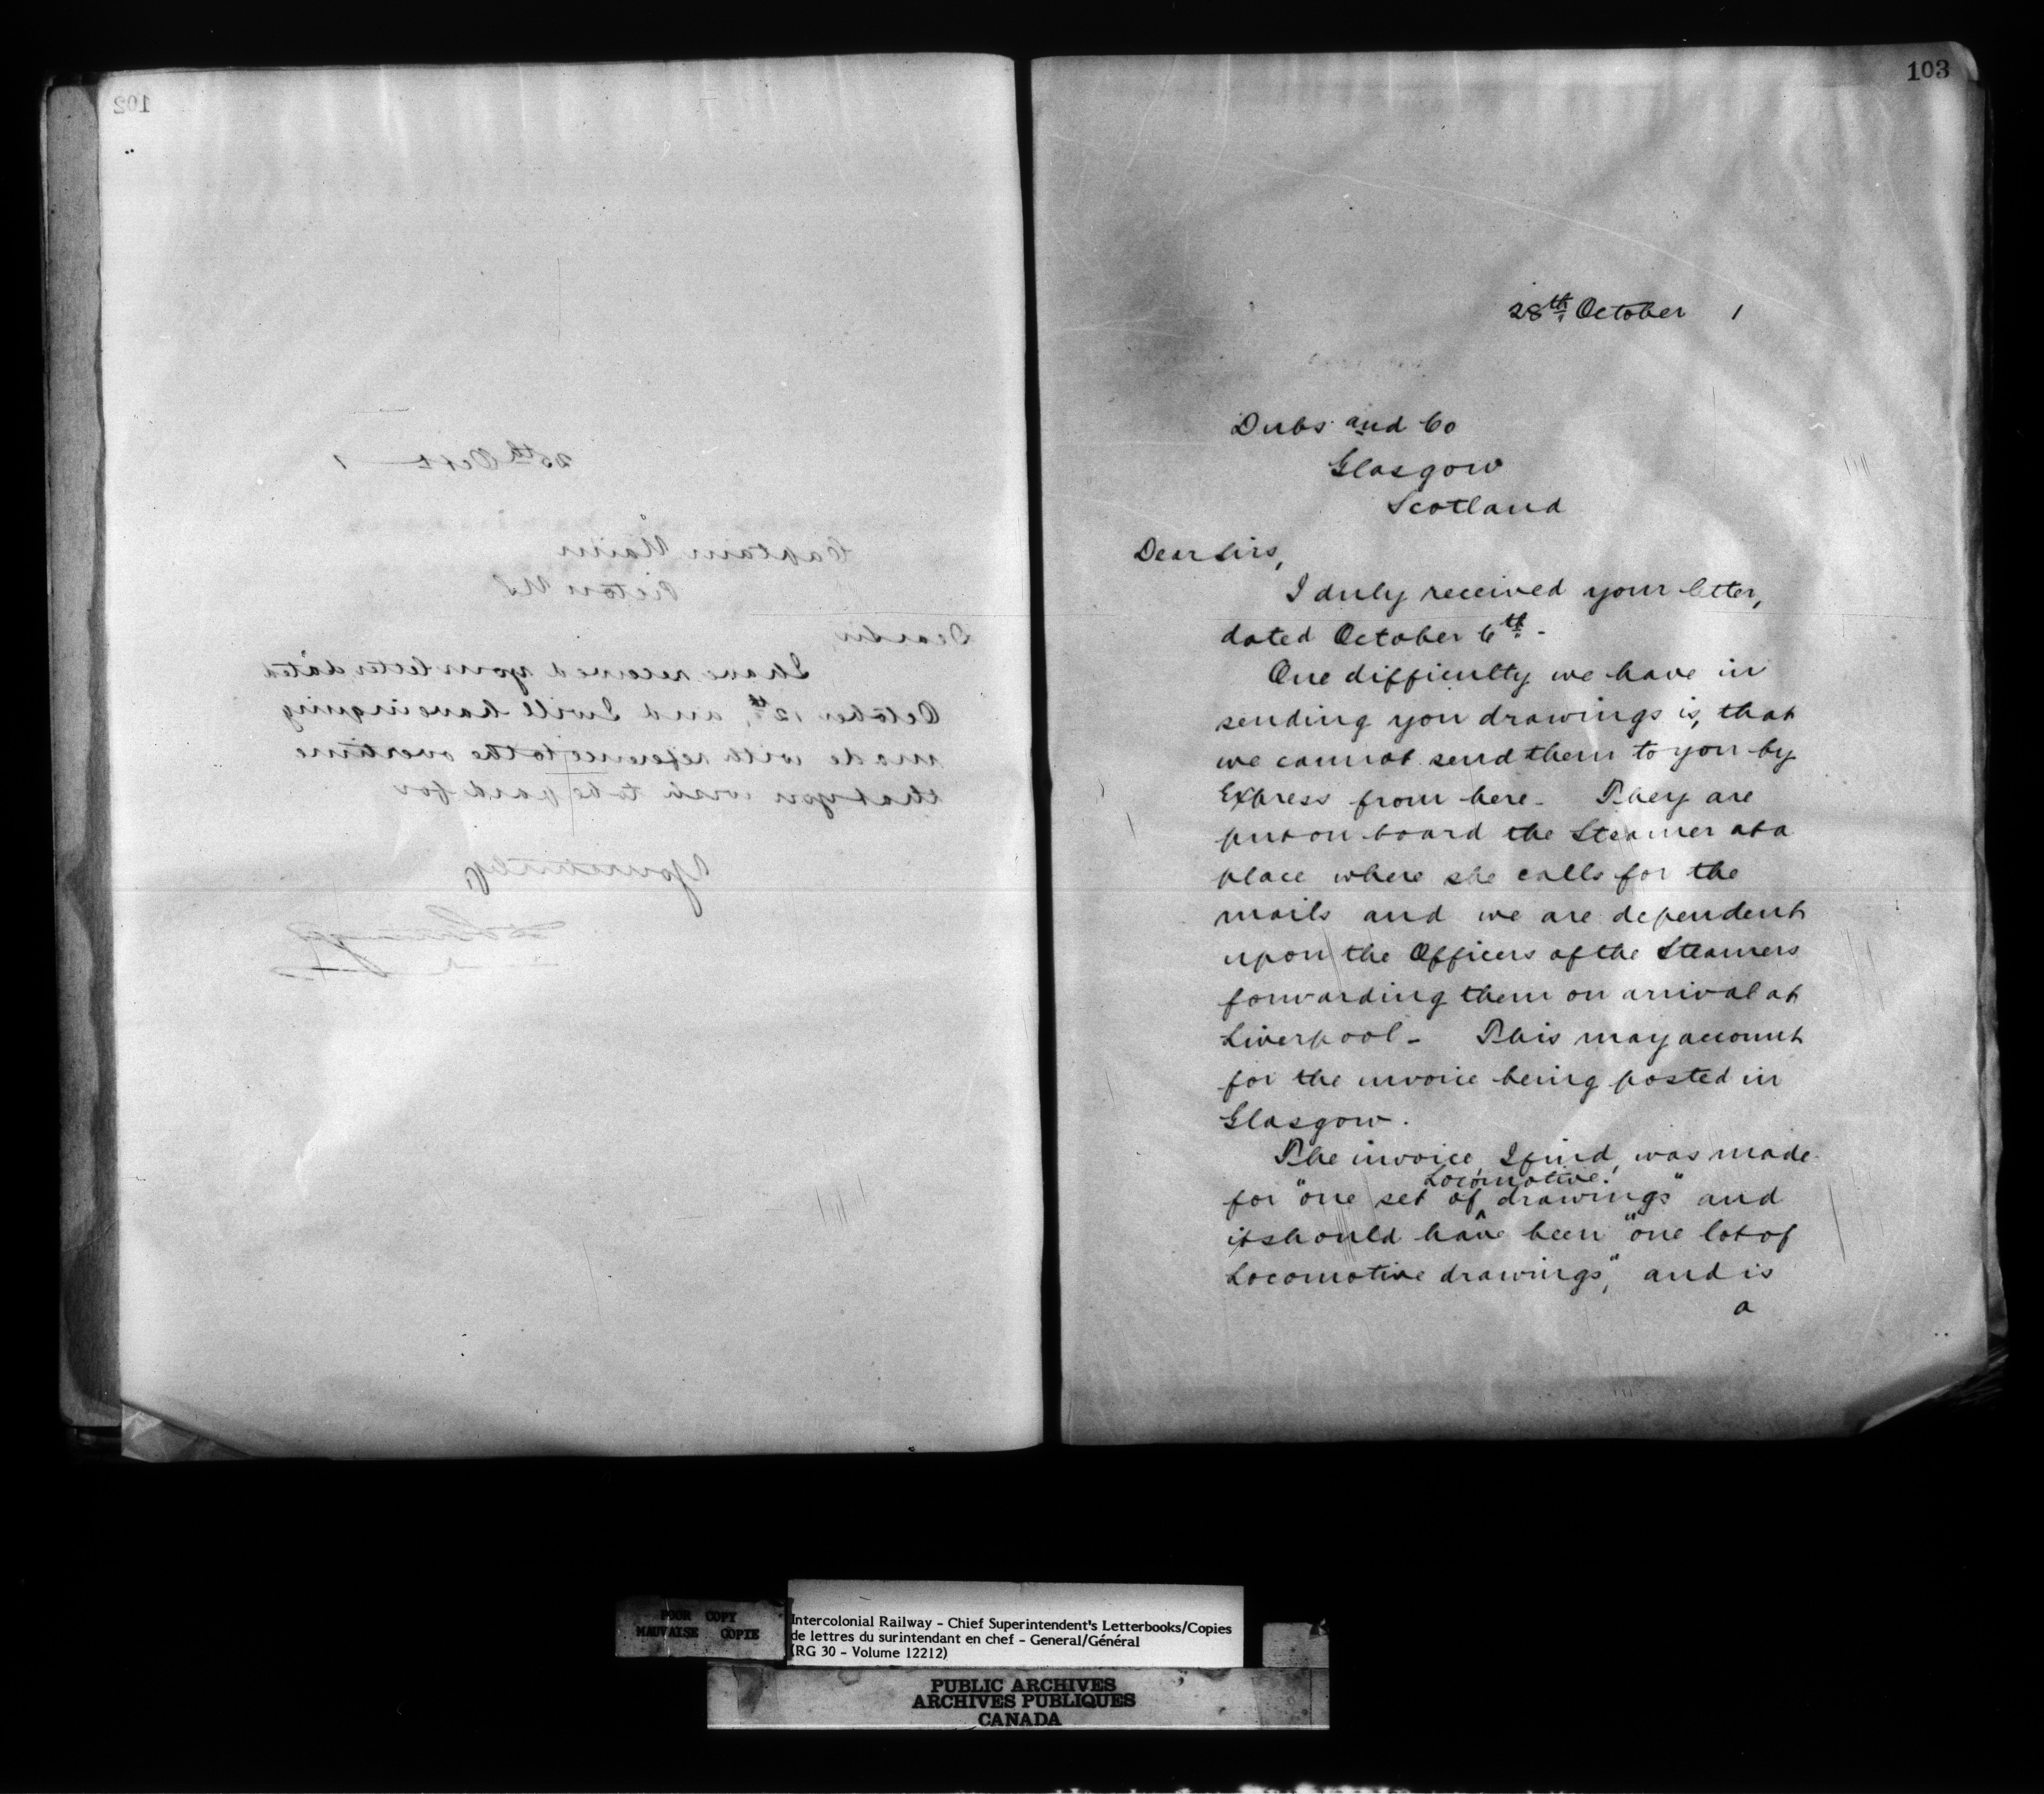 102
28th Octr 1
Captain
Pictou NS
Dear Sir,
I have received your letter dated
October 12th, and I will have inquiry
made with reference to the overtime
that you wish to be paid for
Yours truly,
103
28th October 1
Dubs and Co
Glasgow
Scotland
Dear Sirs,
I duly received your letter,
dated October 6th -
One difficulty we have in
sending you drawings is, that
we cannot send them to you by
Express from here - They are
put on board the Steamer at a
place where she calls for the
mails and we are dependent
upon the Officers of the Steamers
forwarding them on arrival at
Liverpool - This may account
for the invoice being posted in
Glasgow.
The invoice, I find, was made
for "one set of Locomotive drawings" and
it should have been "one lot of
Locomotive drawings", and is
a
POOR COPY
MAUVAISE COPIE
Intercolonial Railway - Chief Superintendent's Letterbooks/Copies
de lettres du surintendant en chef - General/Général
(RG 30 - Volume 12212)
PUBLIC ARCHIVES
ARCHIVES PUBLIQUES
CANADA